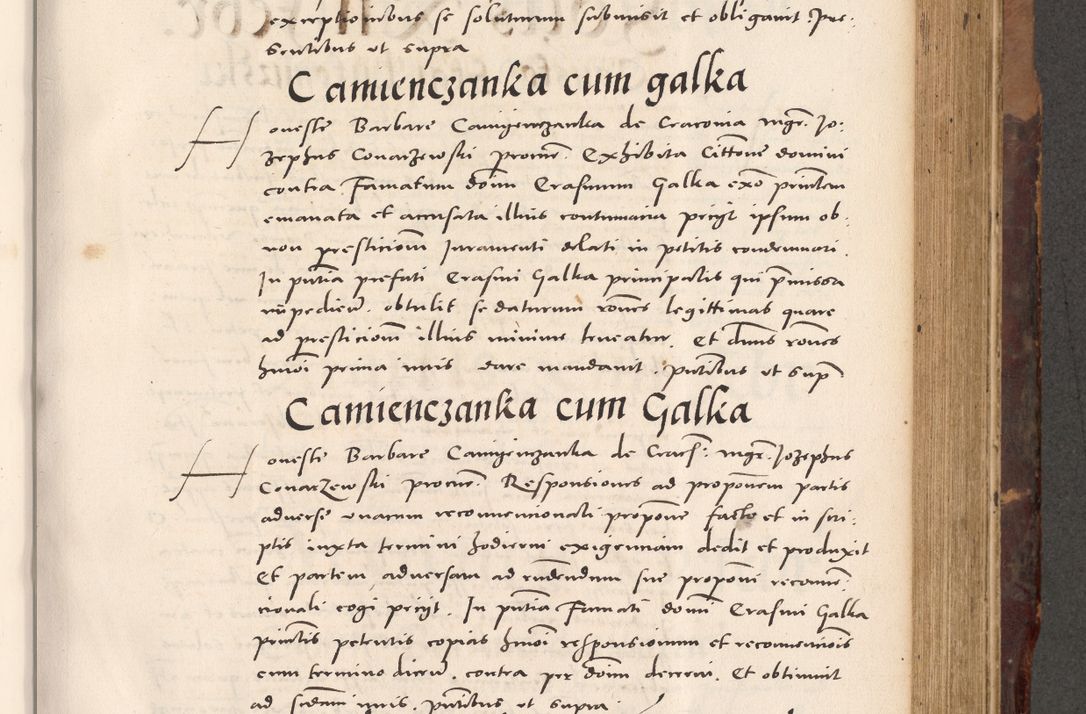 exceptionibus se soluturum submisit et obligavit Pre:
sentibus ut supra
Camienczanka cum galka
Honeste Barbare Camyenczanka de Cracovia Mgr. Jo:
zephus Conarzewski procur. Exhibita Cittone domini
contra Famatum dom Erasmum Galka exo principlem
emanata et accusata illius contumacia peciyt ipsum ob.
non presticiom Juramenti delati in petitis condemnari.
In putia prefati Erasmi Galka principalis qui pmissa
impediem. obtulit se daturum rones legittimas quare
ad presticiom illius minime teneatur. Et dnus rones
hmoi prima iuris dare mandavit. putibus ut sup
Camienczanka cum Galka
Honeste Barbare Camyenczanka de Crac. Mgr. Jozephus
Conarzewski procur. Responsiones ad proponem partis
adverse unacum reconvencionali propone facto et in scri:
ptis iuxta termini hodierni exigenciam dedit et produxit
Et partem adversam ad rndendum sue proponi reconve:
cionali cogi peciyt. In putia Famati domi Erasmi Galka
princlis petentis copias hmoi responsionum et reconvenciois
cum termino dicem. contra per dom decreni. Et obtinuit
ad scdam iuris. putibus ut supra